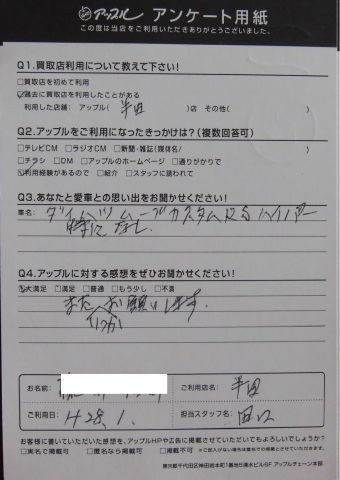 アップル アンケート用紙
この度は当店をご利用いただきありがとうございました。
Q1.買取店利用について教えて下さい!
□買取店を初めて利用
☑過去に買取店を利用したことがある
利用した店舗: アップル( 半田 )店 その他( )
Q2.アップルをご利用になったきっかけは?(複数回答可)
□テレビCM □ラジオCM □新聞・雑誌(媒体名/ )
□チラシ □DM □アップルのホームページ □通りがかりで
☑利用経験があるので □紹介 □スタッフに誘われて
Q3.あなたと愛車との思い出をお聞かせください!
車名: ダイハツ ムーブカスタム RS ハイパー
特になし
Q4.アップルに対する感想をぜひお聞かせください!
☑大満足 □満足 □普通 □もう少し □不満
またいつかお願いします。
お名前:
ご利用店名: 半田
ご利用日: H28.1.
担当スタッフ名: 田口
お客様に書いていただいた感想を、アップルHPや広告に掲載させていただいてもよろしいでしょうか?
□実名で掲載可 □匿名なら掲載可 □掲載不可 ※ご記入がない場合は匿名での掲載とさせていただきます。
東京都千代田区神田岩本町1番地5清水ビル6F アップルチェーン本部